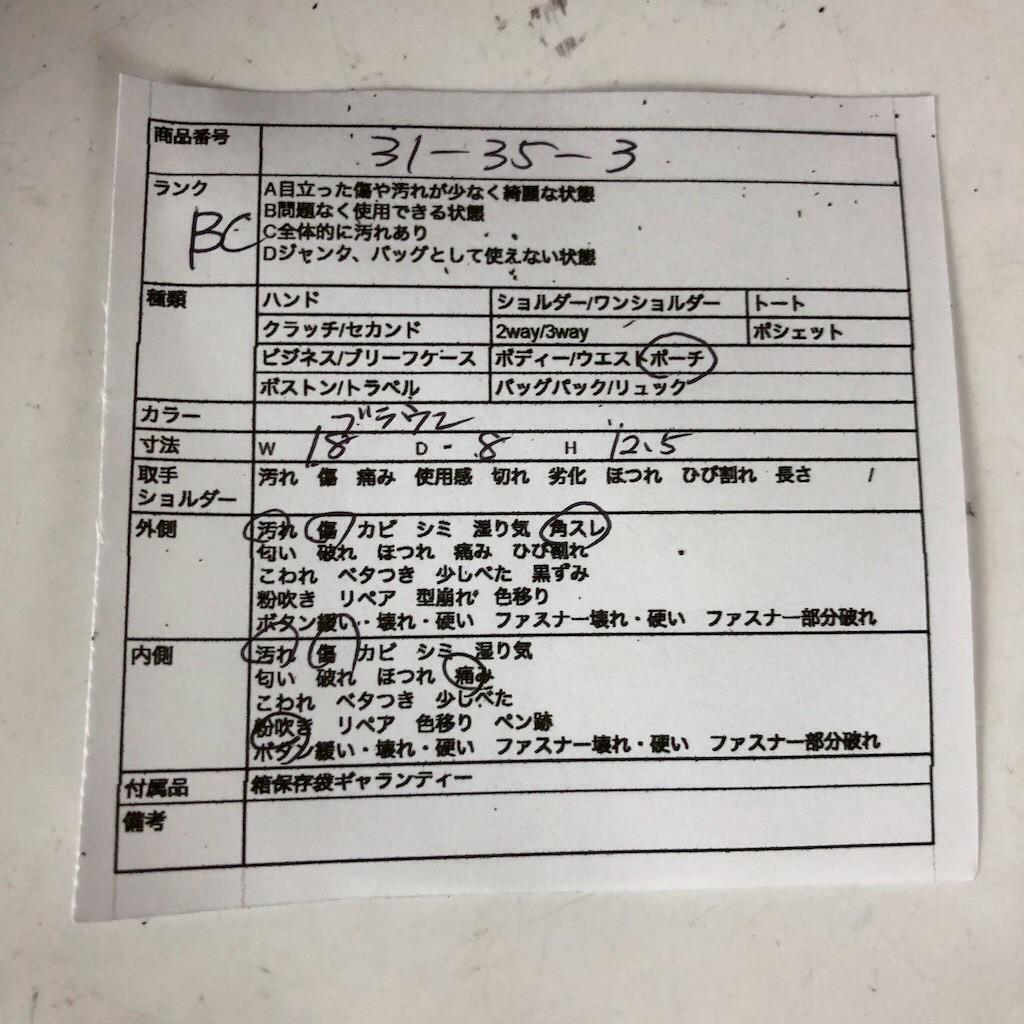 商品番号 31-35-3
ランク BC A目立った傷や汚れが少なく綺麗な状態
B問題なく使用できる状態
C全体的に汚れあり
Dジャンタ、バッグとして使えない状態
種類 ハンド ショルダー/ワンショルダー トート
クラッチ/セカンド 2way/3way ポシェット
ビジネス/ブリーフケース ボディー/ウエストポーチ
ボストン/トラベル バッグパック/リュック
カラー ブラウン
寸法 W 18 D - 8 H 12.5
取手 汚れ 傷 痛み 使用感 切れ 劣化 ほつれ ひび割れ 長さ /
ショルダー
外側 汚れ 傷 カビ シミ 湿り気 角スレ
匂い 破れ ほつれ 痛み ひび割れ
こわれ ベタつき 少しべた 黒ずみ
粉吹き リペア 型崩れ 色移り
ボタン緩い・壊れ・硬い ファスナー壊れ・硬い ファスナー部分破れ
内側 汚れ 傷 カビ シミ 湿り気
匂い 破れ ほつれ 痛み
こわれ ベタつき 少しべた
粉吹き リペア 色移り ペン跡
ボタン緩い・壊れ・硬い ファスナー壊れ・硬い ファスナー部分破れ
付属品 箱保存袋ギャランティー
備考